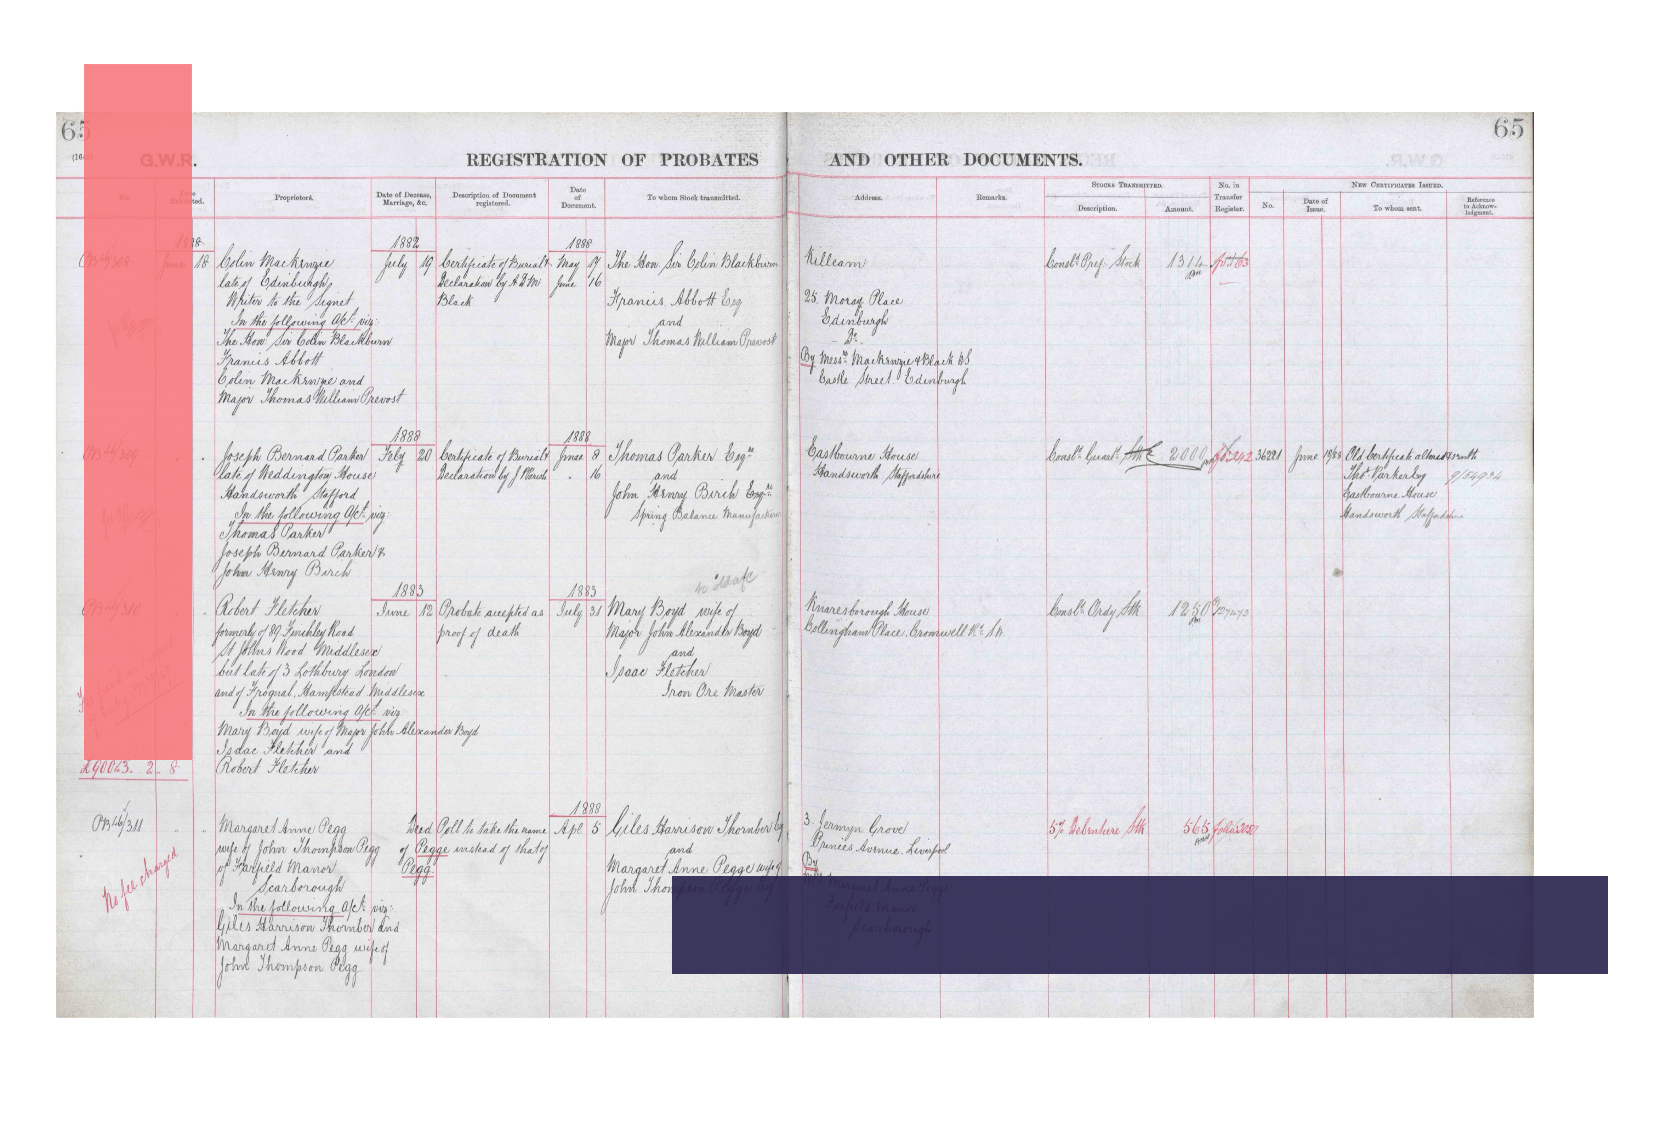 65
65
G.W.R.
REGISTRATION OF PROBATES AND OTHER DOCUMENTS.
No.
Date Exhibited.
Proprietors.
Date of Decease, Marriage, &c.
Description of Document registered.
Date of Document.
To whom Stock transmitted.
Address.
Remarks.
STOCKS TRANSMITTED.
Description.
Amount.
No. in Transfer Register.
NEW CERTIFICATES ISSUED.
No.
Date of Issue.
To whom sent.
Reference to Acknowledgment.
1888
June 18
Colin Mackenzie
late of Edinburgh,
Writer to the Signet
In the following A/ct. viz:
The Hon. Sir Colin Blackburn
Francis Abbott
Colin Mackenzie and
Major Thomas William Prevost
1882
July 19
Certificate of Burial &
Declaration by A D M
Black
1888
May 9
June 16
The Hon. Sir Colin Blackburn
Francis Abbott Esq
and
Major Thomas William Prevost
Killearn
25. Moray Place
Edinburgh
Do.
By Messrs. Mackenzie & Black WS
Castle Street. Edinburgh
Consltd. Pref. Stock
1314
Joseph Bernard Parker
late of Weddington House
Handsworth Stafford
In the following A/ct. viz:
Thomas Parker
Joseph Bernard Parker &
John Henry Birch
1888
Feby 20
Certificate of Burial &
Declaration by J
1888
June 8
" 16
Thomas Parker Esqre
and
John Henry Birch Esqre
Spring Balance Manufacturer
Eastbourne House
Handsworth Staffordshire
Consltd. Guartd. Stk
2000
36221
June 19/88
Old Certificate allowed
Thos. Parker Esq
Eastbourne House
Handsworth Staffordshire
9/54934
to old a/c
Robert Fletcher
formerly of 89 Finchley Road
St Johns Wood Middlesex
but late of 3 Lothbury London
and of Frognal, Hampstead Middlesex
In the following A/ct. viz
Mary Boyd wife of Major John Alexander Boyd
Isaac Fletcher and
Robert Fletcher
1883
June 12
Probate accepted as
proof of death
1883
July 31
Mary Boyd wife of
Major John Alexander Boyd
and
Isaac Fletcher
Iron Ore Master
Knaresborough House
Collingham Place, Cromwell Rd. SW.
Consltd. Ordy Stk
1250
£90043. 2. 8
PB46/311
No fee charged
Margaret Anne Pegg
wife of John Thompson Pegg
of Fairfield Manor
Scarborough
In the following A/ct. viz:
Giles Harrison Thornber and
Margaret Anne Pegg wife of
John Thompson Pegg
Deed Poll to take the name
of Pegge instead of that of
Pegg.
1888
Apl 5
Giles Harrison Thornber Esq
and
Margaret Anne Pegge wife of
John Thompson Pegge Esq
3. Jermyn Grove
Princes Avenue. Liverpool
By
Mrs. Margaret Anne Pegge
Fairfield Manor
Scarborough
5% Debenture Stk
565